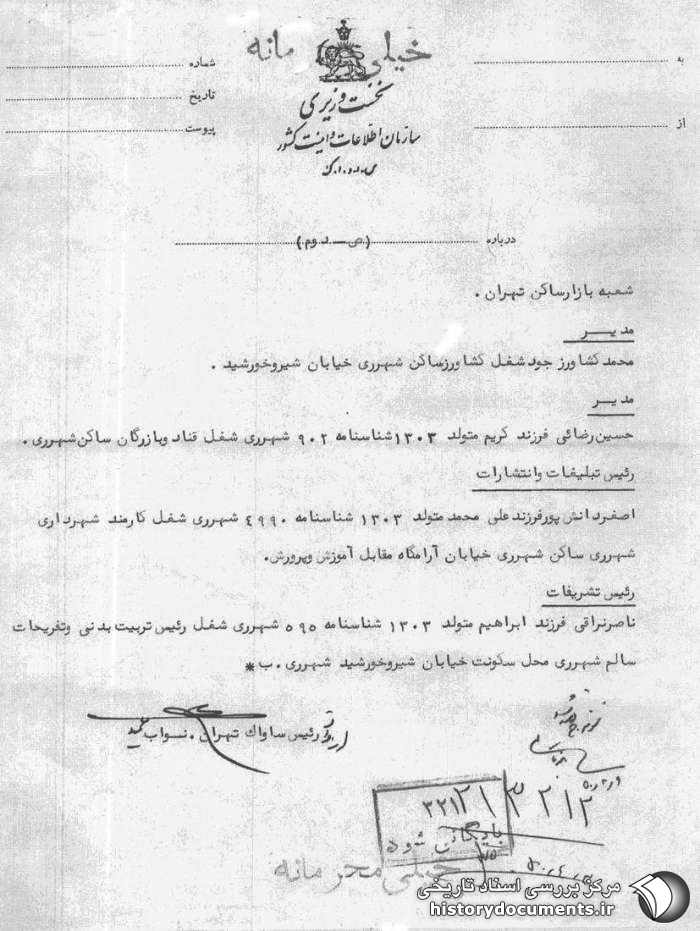 خیلی محرمانه
به
شماره
نخست وزیری
از
تاریخ
سازمان اطلاعات و امنیت کشور
پیوست
س.ا.و.ا.ک
درباره (ص ـ دوم)
شعبه بازار ساکن تهران .
مدیر
محمد کشاورز جود شغل کشاورز ساکن شهرری خیابان شیروخورشید .
مدیر
حسین رضائی فرزند کریم متولد ۱۳۰۳ شناسنامه ۹۰۲ شهرری شغل قناد وبازرگان ساکن شهرری .
رئیس تبلیغات وانتشارات
اصغر دانش پور فرزند علی محمد متولد ۱۳۰۳ شناسنامه ۴۹۹۰ شهرری شغل کارمند شهرداری
شهرری ساکن شهرری خیابان آرامگاه مقابل آموزش وپرورش.
رئیس تشریفات
ناصر نراقی فرزند ابراهیم متولد ۱۳۰۳ شناسنامه ۵۹۵ شهرری شغل رئیس تربیت بدنی وتفریحات
سالم شهرری محل سکونت خیابان شیروخورشید شهرری .ب*
رئیس ساواک تهران . نواب
۳۲۱
بایگانی شود
خیلی محرمانه
مرکز بررسی اسناد تاریخی
historydocuments.ir